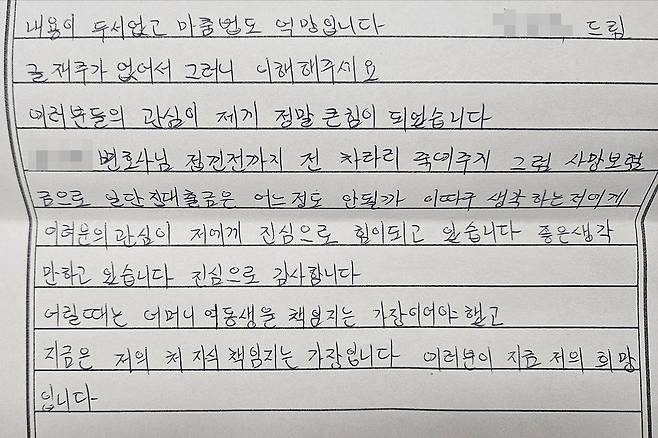 내용이 두서없고 마춤법도 엉망입니다 드림
글재주가 없어서 그러니 이해해주세요
여러분들의 관심이 제게 정말 큰힘이 되었습니다
변호사님 접견전까지 전 차라리 죽여주지 그럼 사망보험
금으로 일단 전대출금은 어느정도 안될까 이따구 생각하는저에게
여러분의관심이 저에게 진심으로 힘이되고 있습니다 좋은생각
만하고 있습니다 진심으로 감사합니다
어릴때는 어머니 여동생을 책임지는 가장이어야했고
지금은 저의 처 자식 책임지는 가장입니다 여러분이 지금 저의 희망
입니다